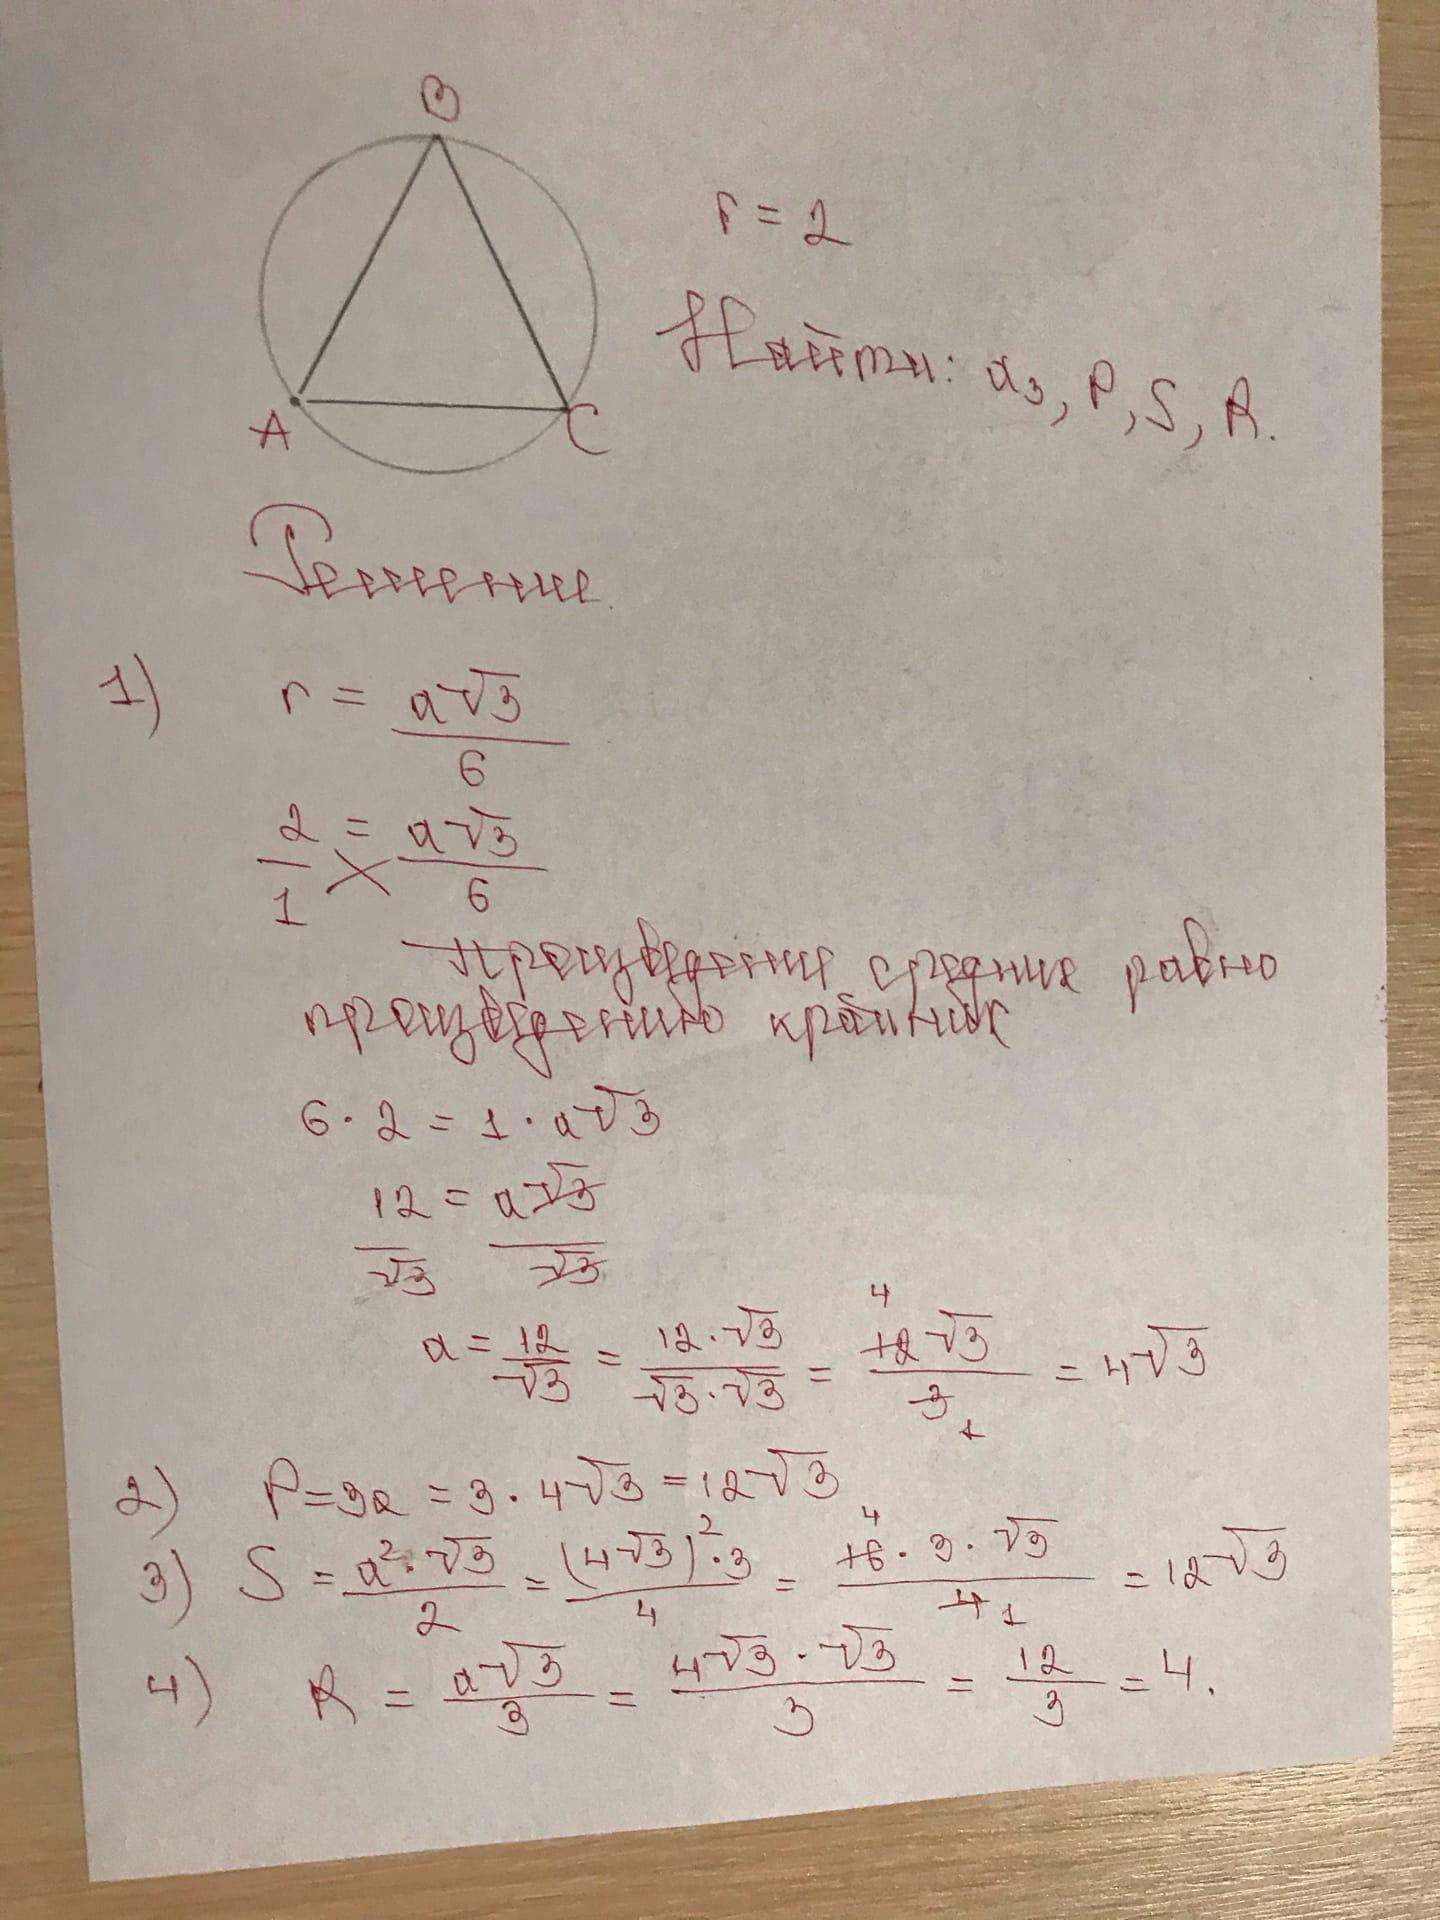 B
r = 2
Найти: a₃, P, S, R.
A
C
Решение
1) r = a√3/6
2/1 = a√3/6
Произведение средние равно
произведению крайних
6 · 2 = 1 · a√3
12/√3 = a√3/√3
a = 12/√3 = 12·√3/√3·√3 = 12√3/3 = 4√3
4
1
2) P = 3a = 3 · 4√3 = 12√3
3) S = a²·√3/2 = (4√3)²·3/4 = 16·3·√3/4 = 12√3
4
1
4) R = a√3/3 = 4√3·√3/3 = 12/3 = 4.